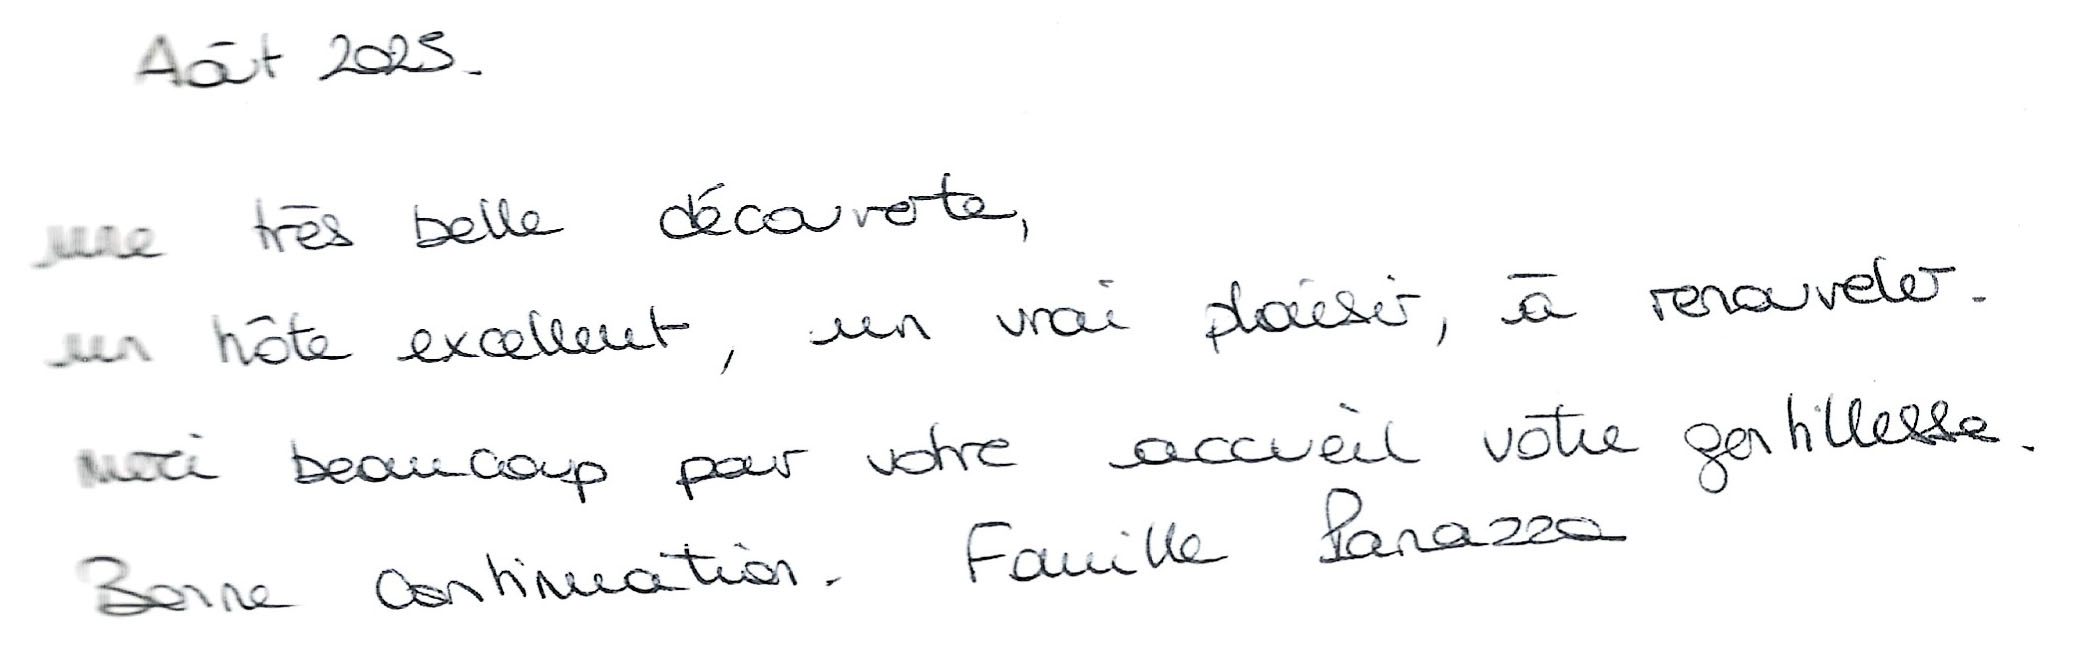 Août 2025.
une très belle découverte,
un hôte excellent, un vrai plaisir, à renouveler.
merci beaucoup pour votre accueil votre gentillesse.
Bonne continuation. Famille Panazza